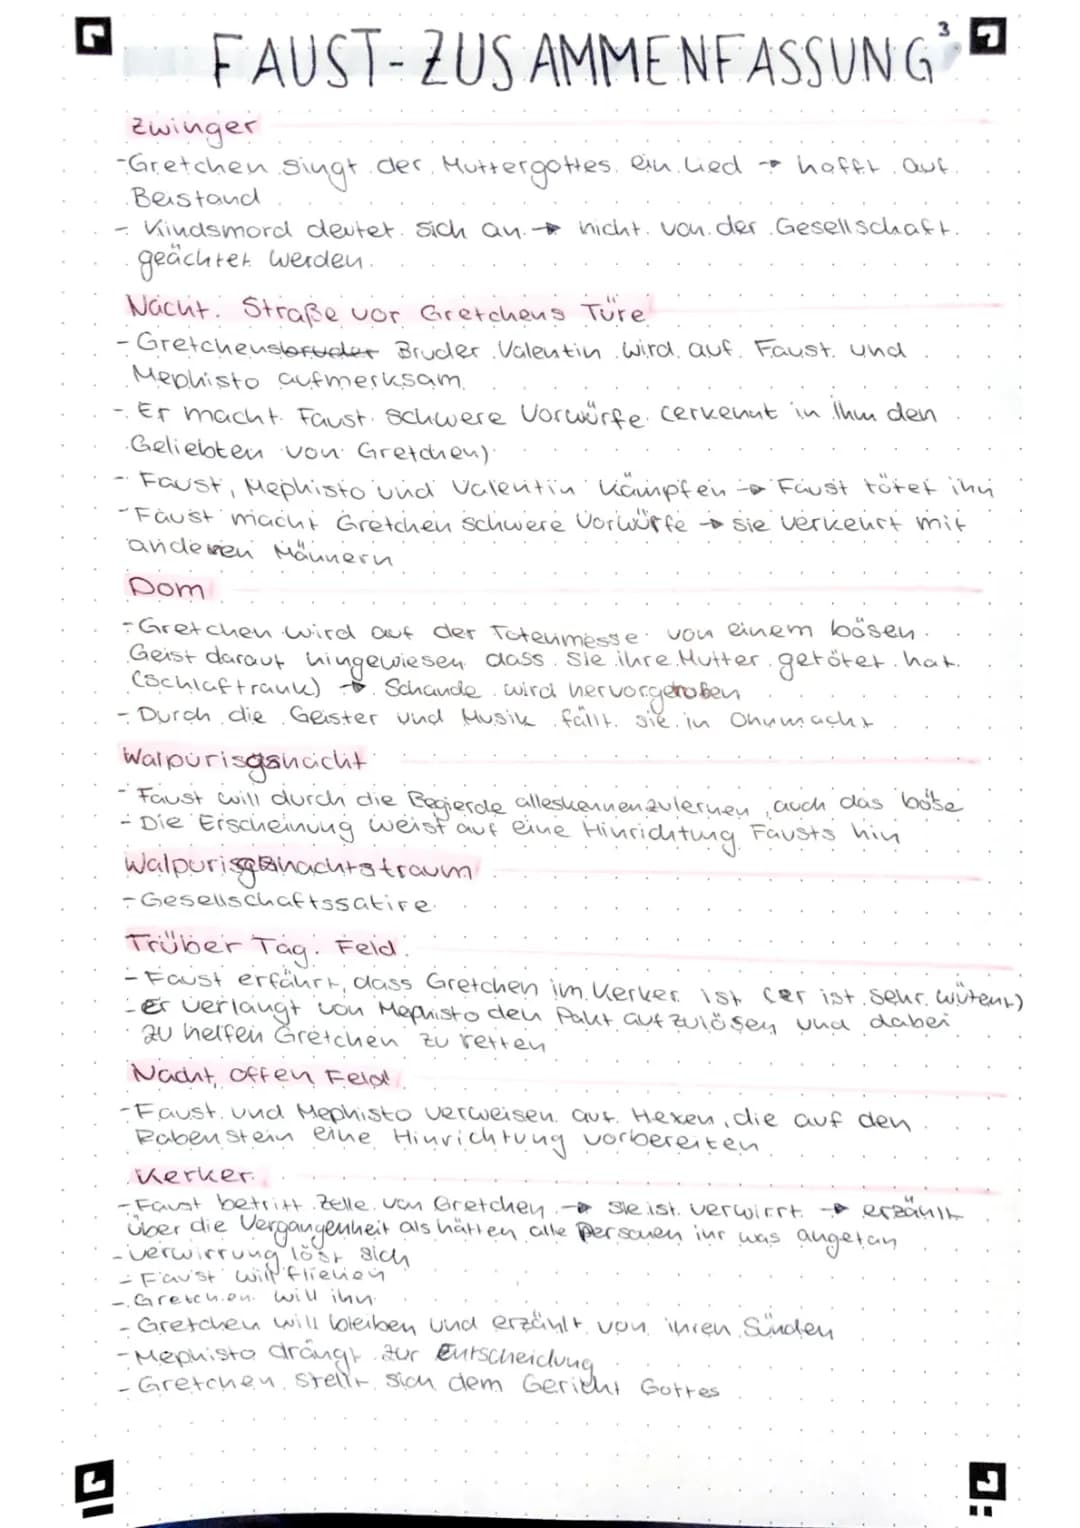 FAUST-ZUSAMMENFASSUNG³
Zwinger
-Gretchen singt der Muttergottes ein Lied → hofft auf
Beistand
- Kindsmord deutet sich an → nicht von der Gesellschaft
geächtet werden
Nacht. Straße vor Gretchens Türe
- Gretchens Bruder Valentin wird auf Faust und
Mephisto aufmerksam
- Er macht Faust schwere Vorwürfe (erkennt in ihm den
Geliebten von Gretchen)
- Faust, Mephisto und Valentin kämpfen → Faust tötet ihn
- Faust macht Gretchen schwere Vorwürfe → sie verkehrt mit
anderen Männern
Dom
- Gretchen wird auf der Totenmesse von einem bösen
Geist darauf hingewiesen dass sie ihre Mutter getötet hat
(Schlaftrank) → Schande wird hervorgehoben
- Durch die Geister und Musik fällt sie in Ohnmacht
Walpurisgsnacht
- Faust will durch die Begierde alleskennenzulernen, auch das böse
- Die Erscheinung weist auf eine Hinrichtung Fausts hin
Walpurisgsnachtstraum
- Gesellschaftssatire
Trüber Tag. Feld.
- Faust erfährt, dass Gretchen im Kerker ist (er ist sehr wütent)
- Er verlangt von Mephisto den Pakt aufzulösen und dabei
zu helfen Gretchen zu retten
Nacht, offen Feld
- Faust und Mephisto verweisen auf Hexen, die auf den
Rabenstein eine Hinrichtung vorbereiten
Kerker
- Faust betritt Zelle von Gretchen → sie ist verwirrt → erzählt
über die Vergangenheit als hätten alle Personen ihr was angetan
- verwirrung löst sich
- Faust will fliehen
- Gretchen will ihn
- Gretchen will bleiben und erzählt von ihren Sünden
- Mephisto drängt zur Entscheidung
- Gretchen stellt sich dem Gericht Gottes